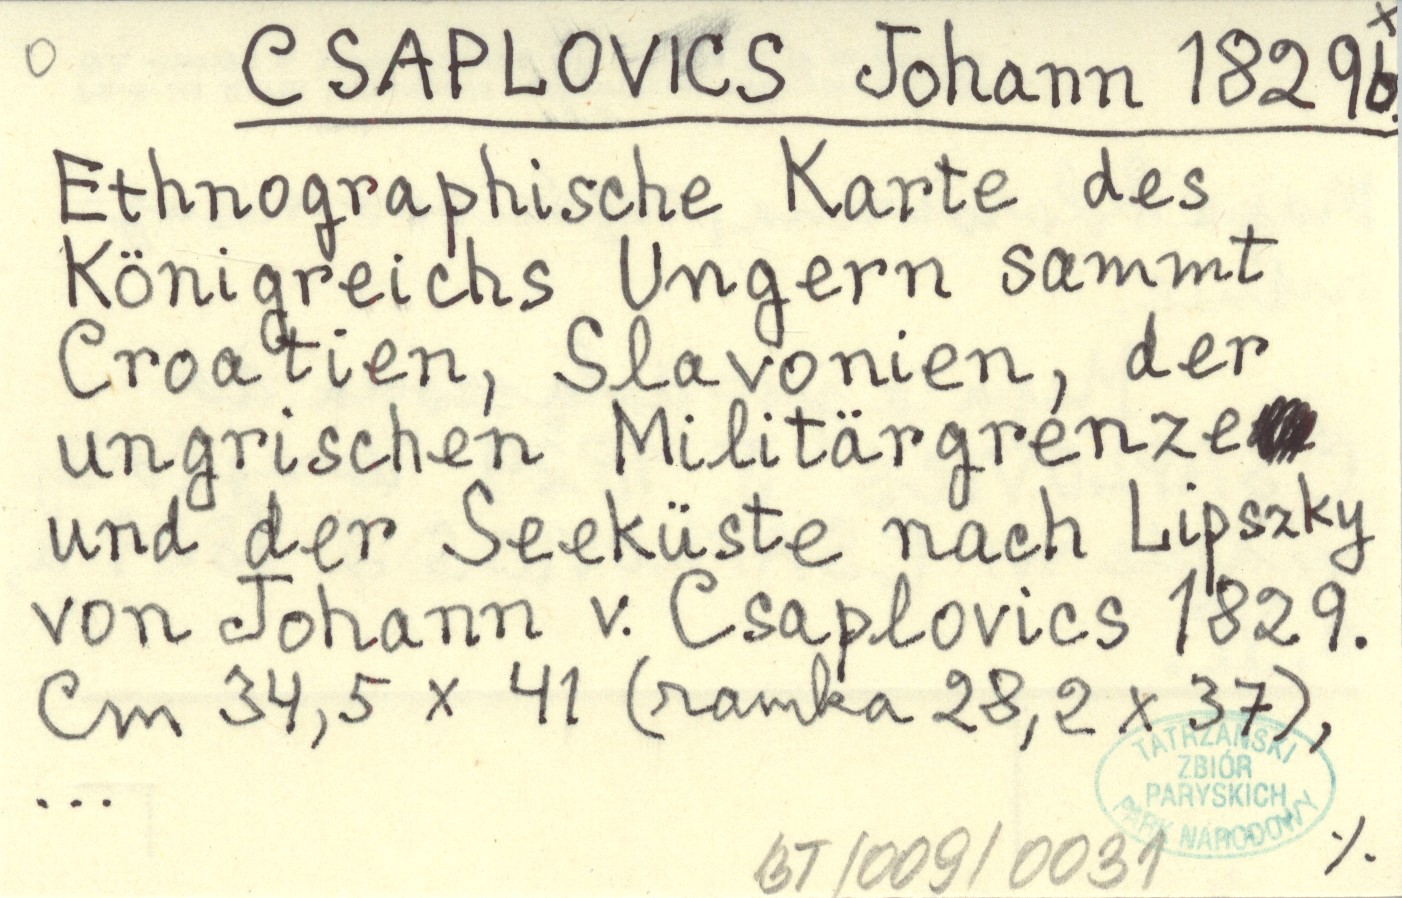 o CSAPLOVICS Johann 1829b. x
Ethnographische Karte des
Königreichs Ungern sammt
Croatien, Slavonien, der
ungrischen Militärgrenze
und der Seeküste nach Lipszky
von Johann v. Csaplovics 1829.
Cm 34,5 x 41 (ramka 28,2 x 37),
...
TATRZAŃSKI
ZBIÓR
PARYSKICH
PARK NARODOWY
BT/009/0031
./.